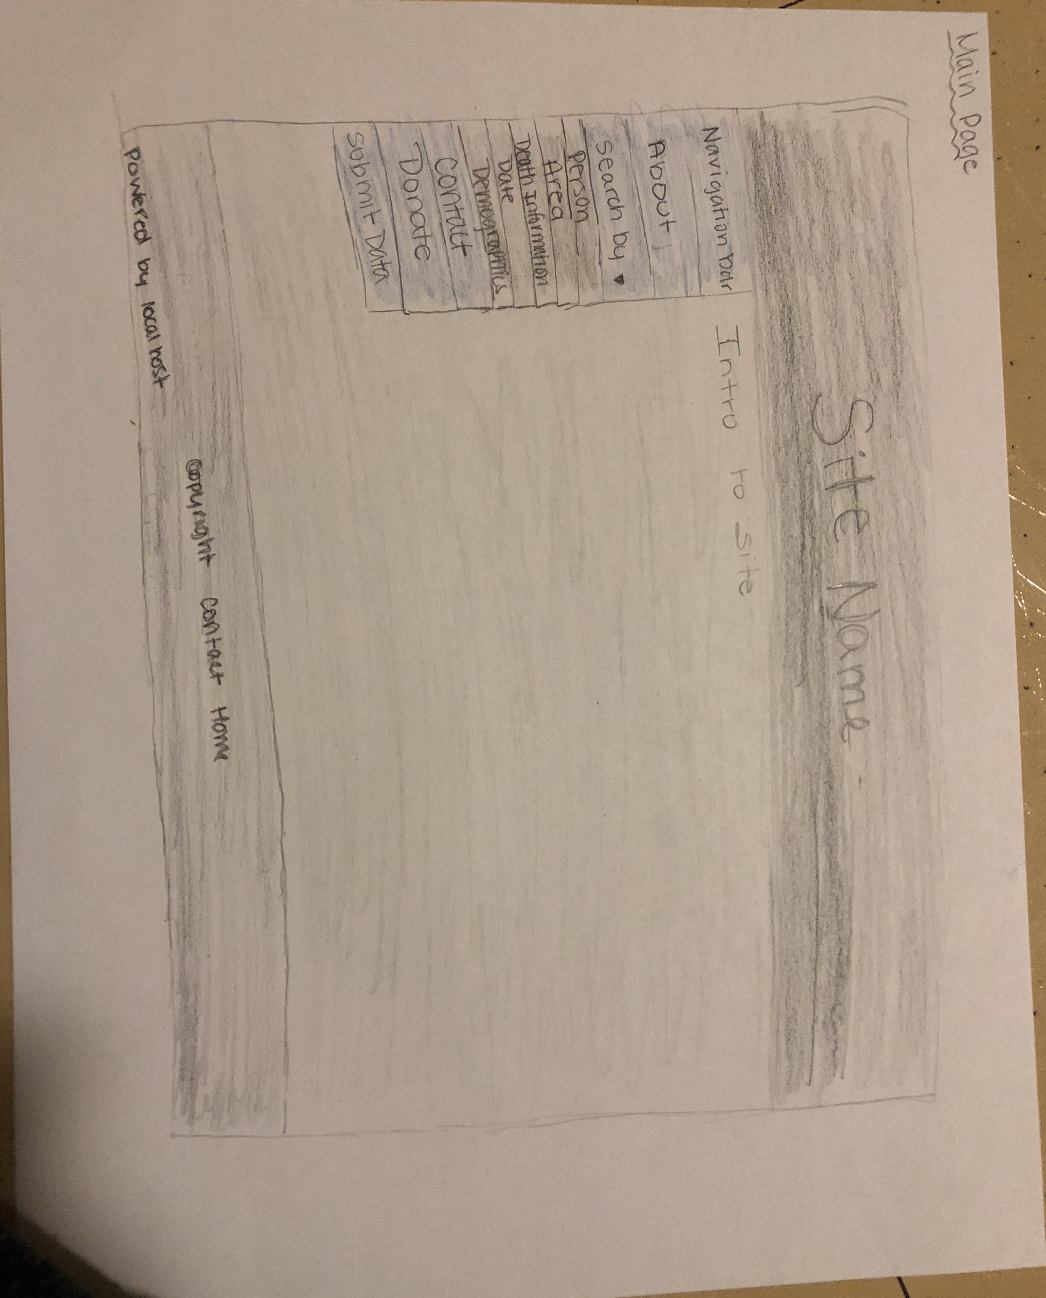 Main Page
Site Name
Navigation bar
Intro to site
About
search by ▾
Person
Area
Death Information
Date
Demographics
Contact
Donate
Submit Data
Copyright Contact Home
Powered by local host